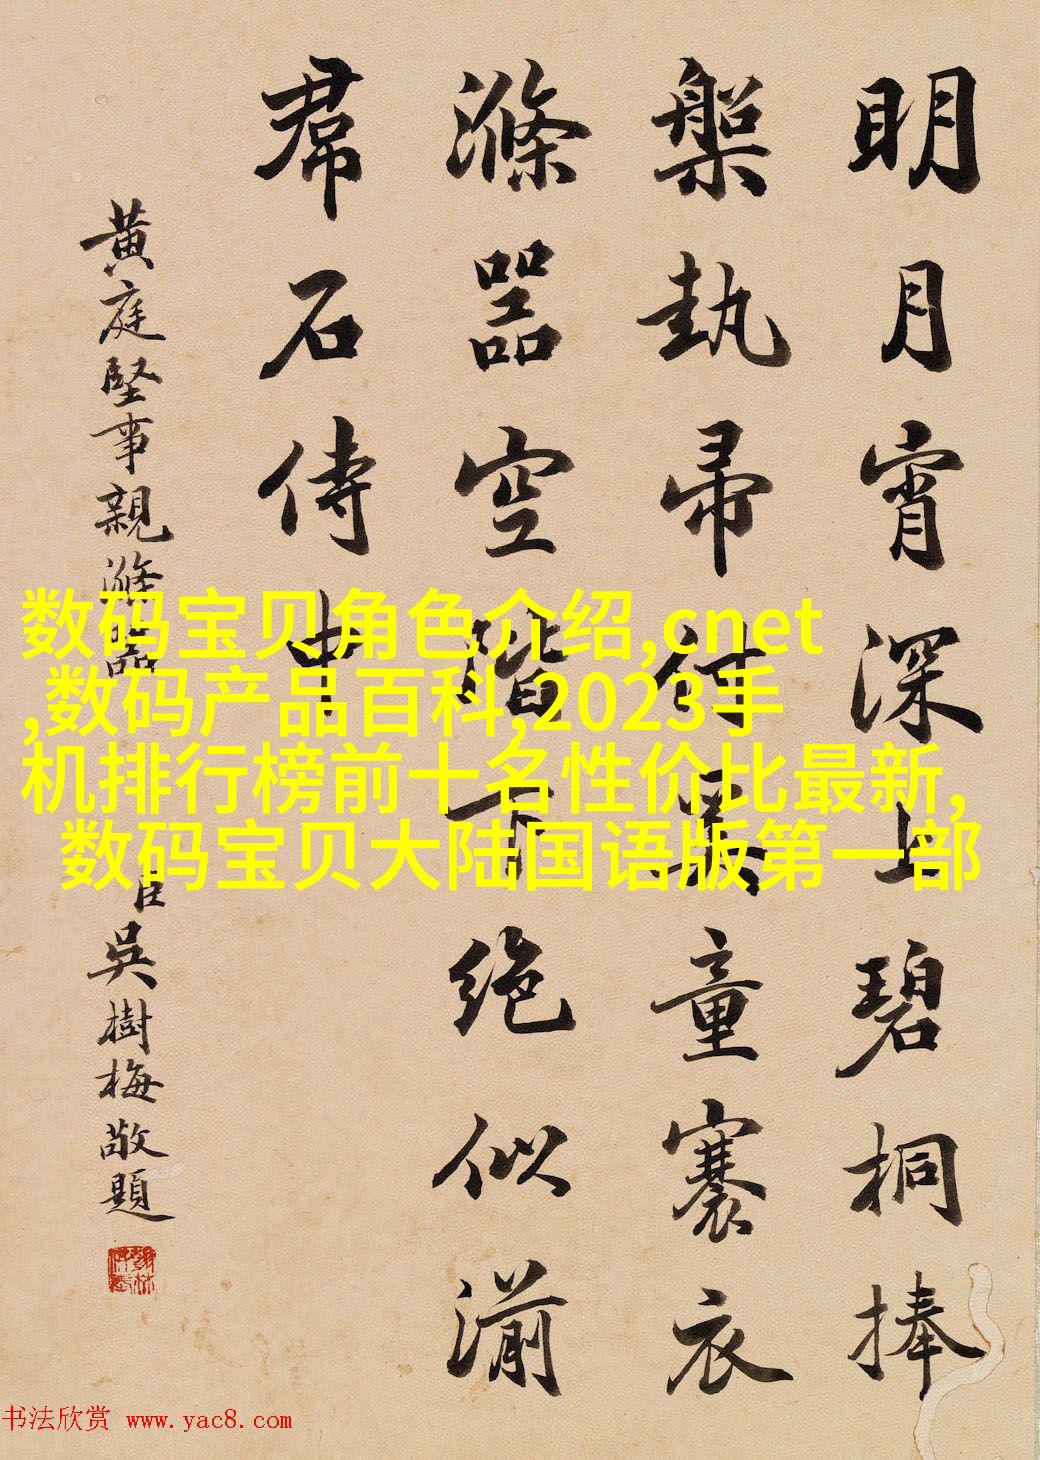 明月宵深上碧桐捧
槃執帚付童褰衣
滌器空階下絶似湔
帬石侍中
黄庭堅事親滌器
臣吳樹梅敬題
数码宝贝角色介绍,cnet
,数码产品百科,2023手
机排行榜前十名性价比最新,
数码宝贝大陆国语版第一部
书法欣赏 www.yac8.com